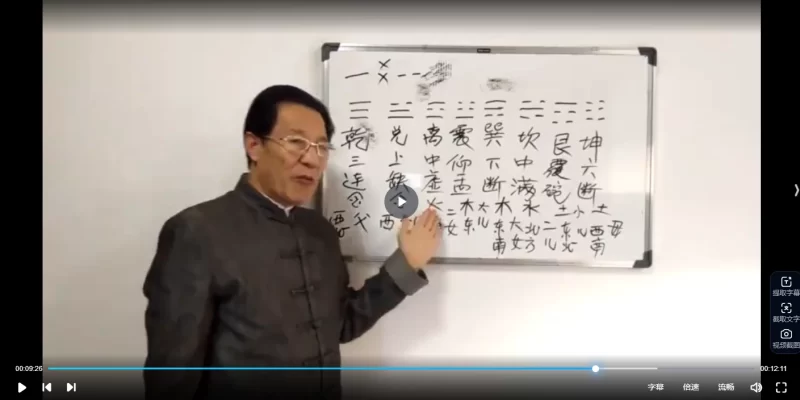 乾三连金父
兑上缺
西
离中虚火
二女
震仰盂木
东
大儿
巽下断木
东南
大女
坎中满水
北方
二儿
艮覆碗土
东北
小儿
坤六断土
西南
母
提取字幕
截取文字
视频截图
00:09:26
00:12:11
字幕
倍速
流畅